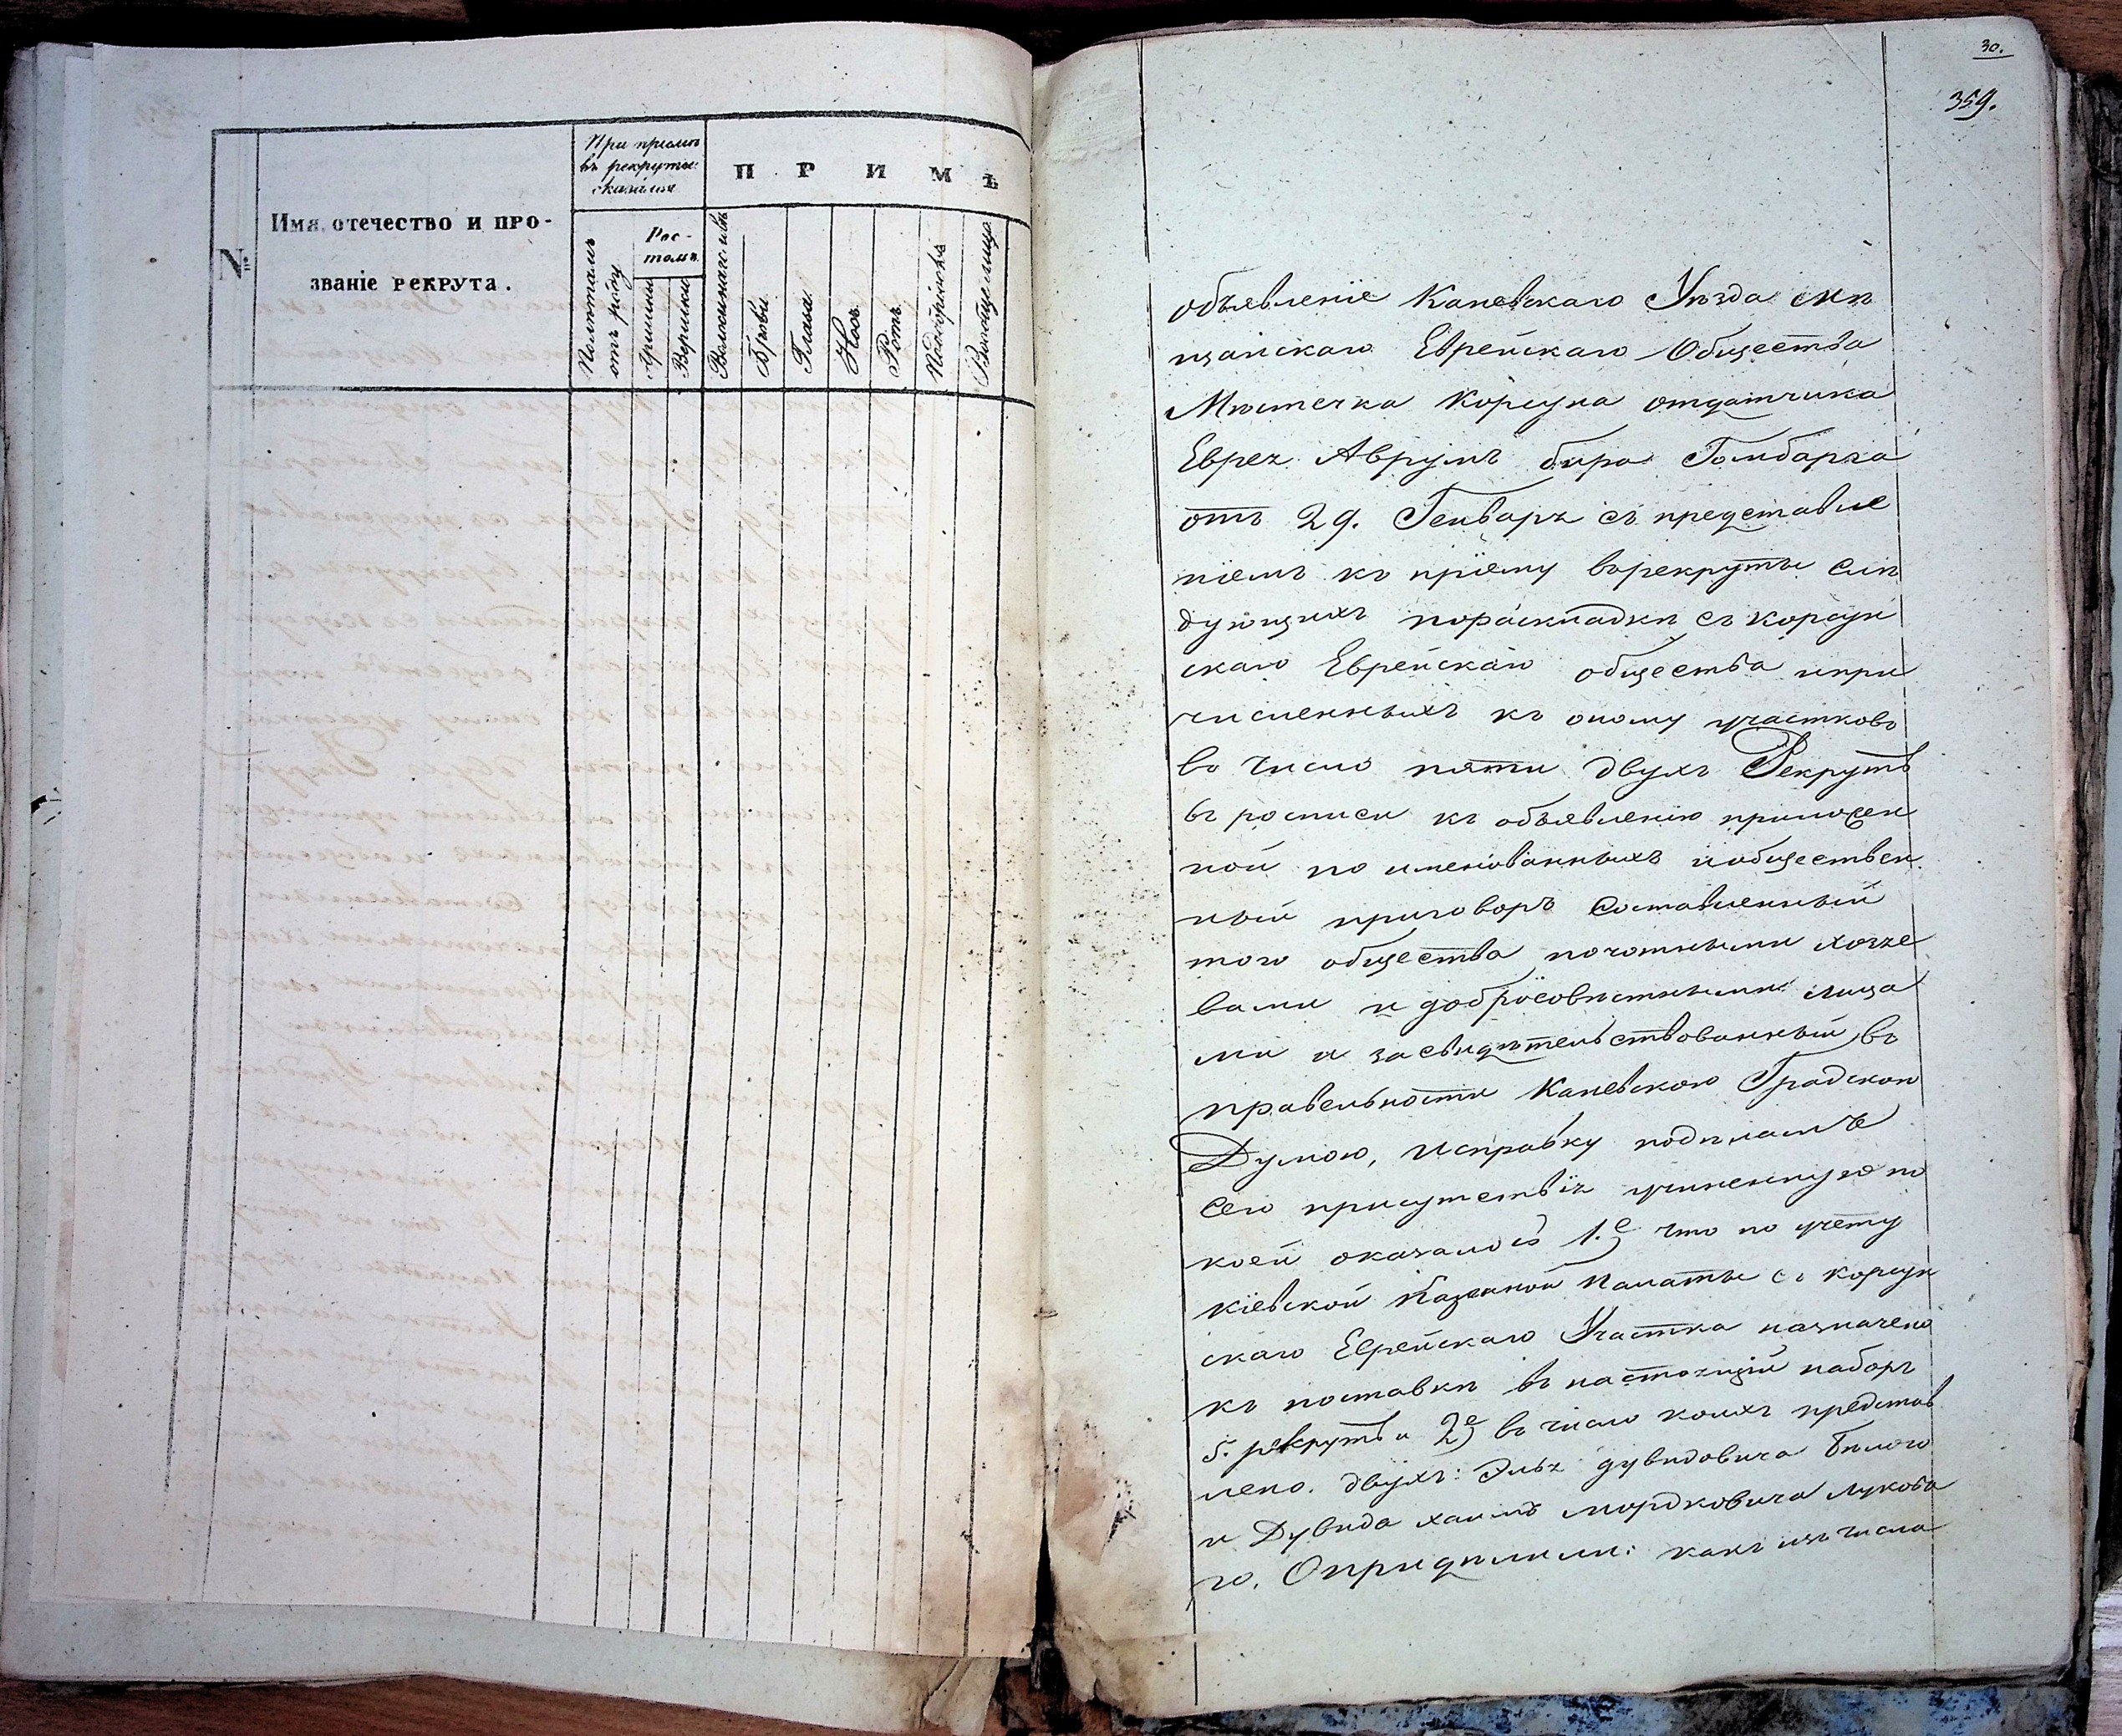 №
Имя, отечество и про-
званіе рекрута.
При пріемѣ
въ рекруты
сказался
Лѣтъ
отъ роду
Рос-
томъ
Аршины
Вершки
П Р И М Ѣ
Брови
Глаза
Носъ
Ротъ
Подбородокъ
Вообще лицо
30.
359.
объявленіе Каневскаго Уѣзда мѣ
щанскаго Еврейскаго Общества
Мѣстечка Корсуна отдатчика
Еврея Аврумъ бера Гомбарга
отъ 29. Генваря съ представле
ніемъ къ пріему врекруты слѣ
дующихъ пораскладки съ корсун
скаго Еврейскаго общества ипри
численныхъ къ оному участковъ
во число пяти двухъ Рекрутъ
въ росписи къ объявленію приложен
ной по именованныхъ иобществен
ный приговоръ составленный
того общества почотными хозяе
вами и добросовѣстными лица
ми и засвидѣтельствованный въ
правельности Каневскою Градскою
Думою, исправку
сего присутствія учиненную по
коей оказалось 1.е что по учету
Кіевской Казенной Палаты съ корсун
скаго Еврейскаго Участка назначено
къ поставкѣ въ настоящій наборъ
5. рекрутъ и 2е въ число коихъ представ
лено. двухъ: Элья дувидовича Бѣлого
и Дувида хаимъ мордковича Луково
го. Опридѣлили: какъ изъ числа